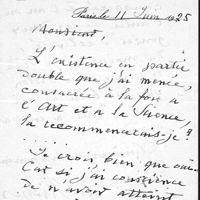 Paris le 11 Juin 1925
Monsieur,
L'existence en partie
double que j'ai menée,
consacrée à la fois à
l'Art et à la Science,
la recommencerais-je?
Je crois bien que oui.
Car si j'ai conscience
de n'avoir atteint